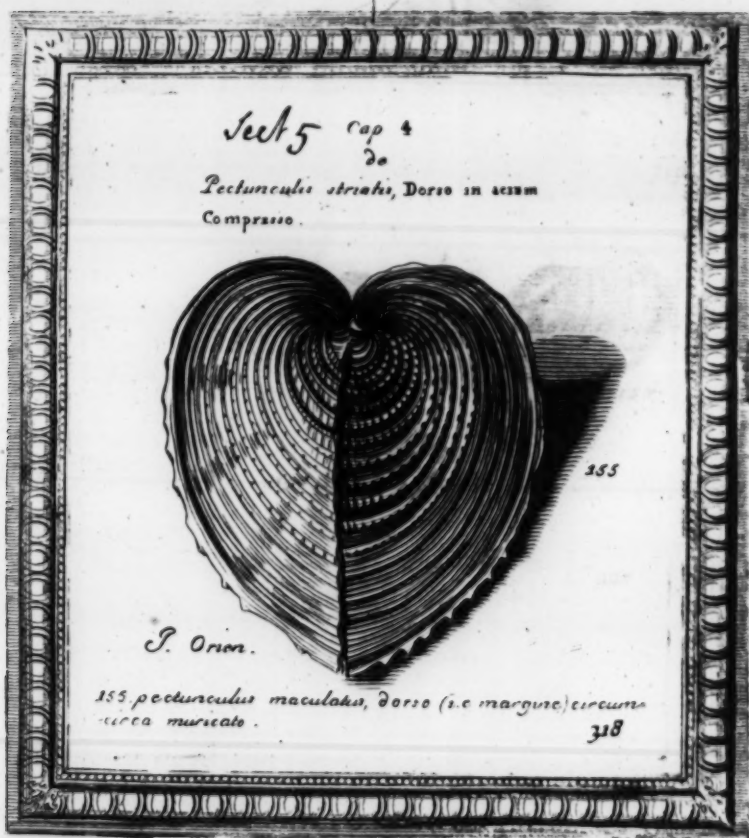 Sect 5 Cap 4
de
Pectunculis striatis, Dorso in aciem
Compresso.
155
P. Orien.
155. pectunculus maculatus, dorso (i.e margine) circum-
-circa muricato.
318